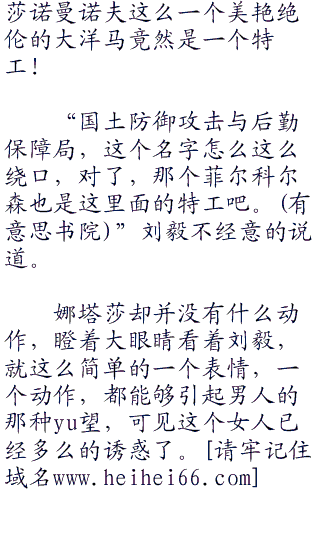 莎诺曼诺夫这么一个美艳绝
伦的大洋马竟然是一个特
工！
“国土防御攻击与后勤
保障局，这个名字怎么这么
绕口，对了，那个菲尔科尔
森也是这里面的特工吧。(有
意思书院)”刘毅不经意的说
道。
娜塔莎却并没有什么动
作，瞪着大眼睛看着刘毅，
就这么简单的一个表情，一
个动作，都能够引起男人的
那种yu望，可见这个女人已
经多么的诱惑了。[请牢记住
域名www.heihei66.com]